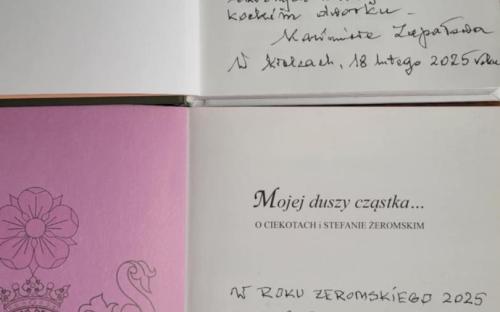 kockim dworku.
Kazimiera Zapałowa
W Kielcach, 18 lutego 2025 roku
Mojej duszy cząstka...
O CIEKOTACH i STEFANIE ŻEROMSKIM
W ROKU ŻEROMSKIEGO 2025